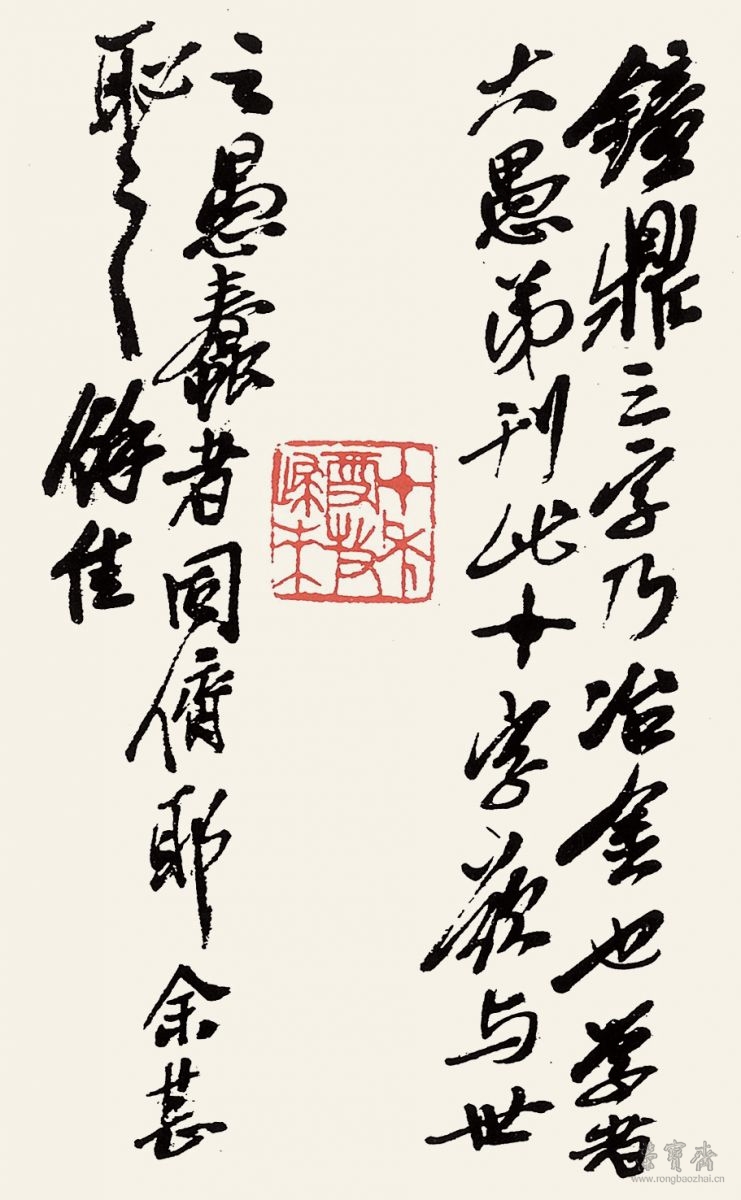 鐘鼎之字乃冶金也学者
大愚弟刊此十字欲与世
之愚蠢者同俯耶余甚
耻之
餘佳
榮寶齋
www.rongbaozhai.cn